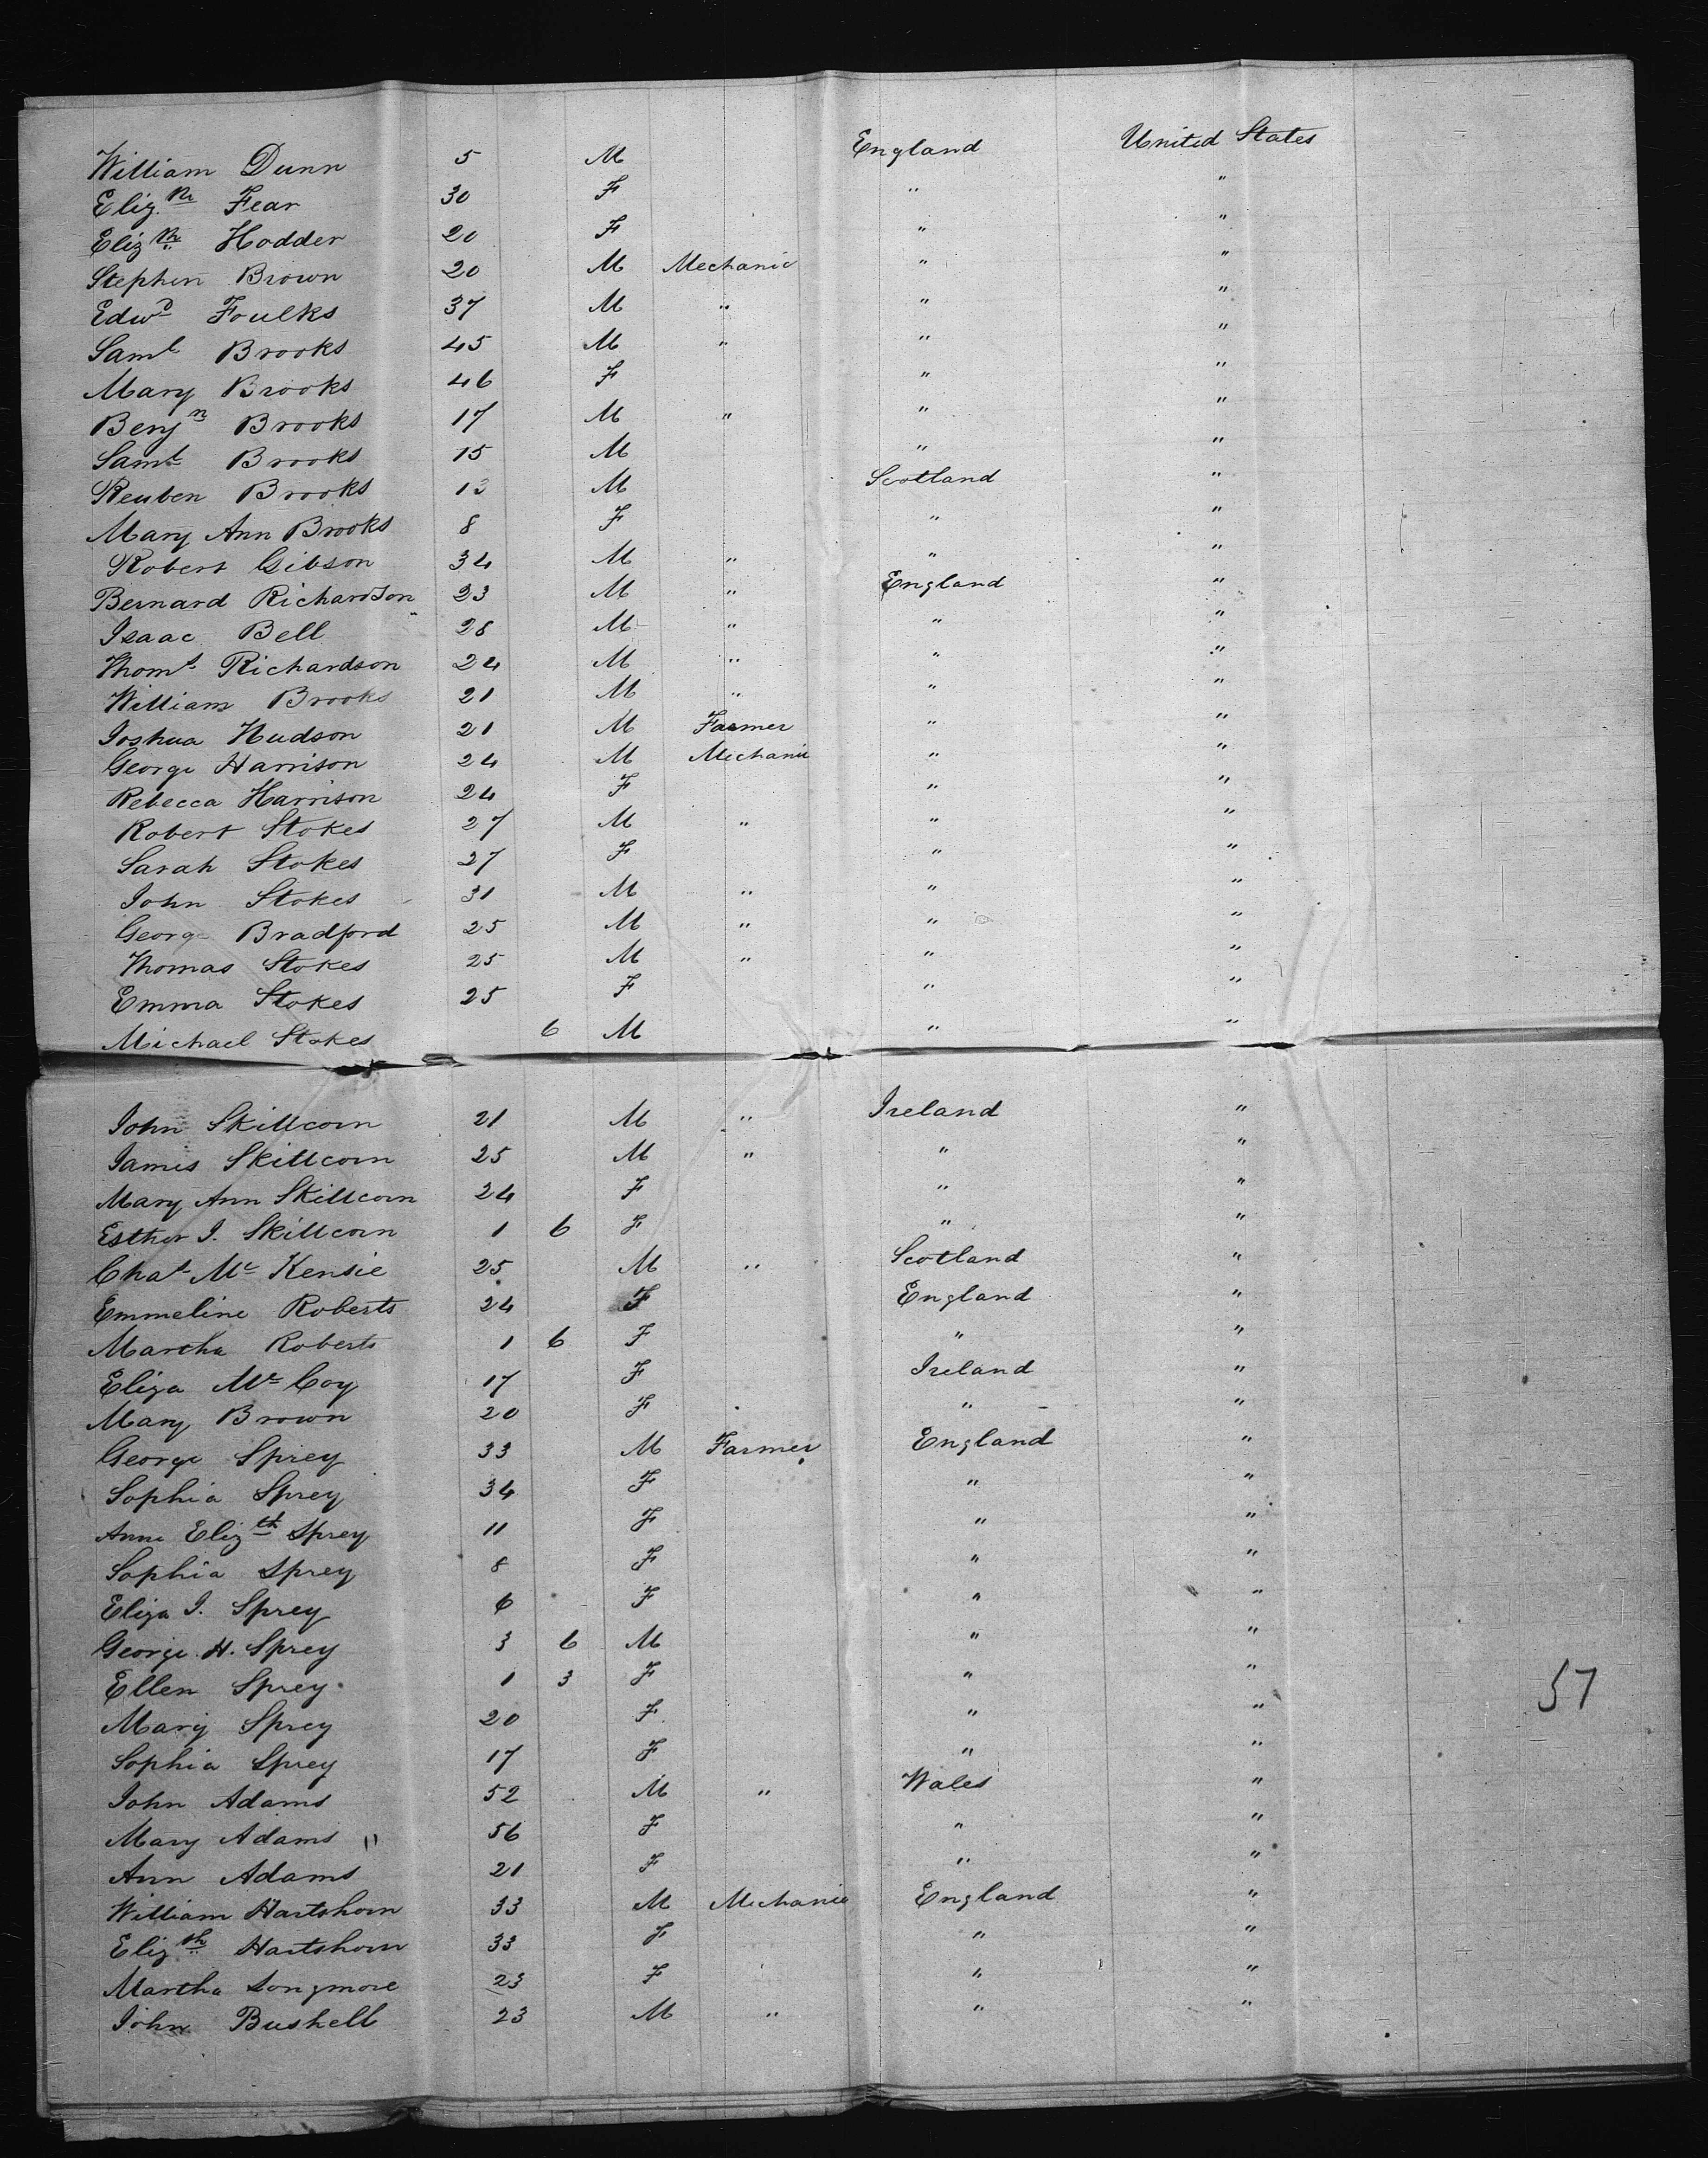 William Dunn 5 M England United States
Eliz.th Fear 30 F " "
Elizth Hodder 20 F " "
Stephen Brown 20 M Mechanic " "
Edwd Foulks 37 M " " "
Saml Brooks 45 M " " "
Mary Brooks 46 F " "
Benjn Brooks 17 M " " "
Saml Brooks 15 M " "
Reuben Brooks 13 M Scotland "
Mary Ann Brooks 8 F " "
Robert Gibson 34 M " " "
Bernard Richardson 23 M " England "
Isaac Bell 28 M " " "
Thoms Richardson 24 M " " "
William Brooks 21 M " " "
Joshua Hudson 21 M Farmer " "
George Harrison 24 M Mechanic " "
Rebecca Harrison 24 F " "
Robert Stokes 27 M " " "
Sarah Stokes 27 F " "
John Stokes 31 M " " "
George Bradford 25 M " " "
Thomas Stokes 25 M " " "
Emma Stokes 25 F " "
Michael Stokes 6 M " "
John Skillcorn 21 M " Ireland "
James Skillcorn 25 M " " "
Mary Ann Skillcorn 24 F " "
Esther J. Skillcorn 1 6 F " "
Chas Mc Kensie 25 M " Scotland "
Emmeline Roberts 24 F England "
Martha Roberts 1 6 F " "
Eliza Mc Coy 17 F Ireland "
Mary Brown 20 F " "
George Sprey 33 M Farmer England "
Sophia Sprey 34 F " "
Anne Elizth Sprey 11 F " "
Sophia Sprey 8 F " "
Eliza J. Sprey 6 F " "
George. H. Sprey 3 6 M " "
Ellen Sprey 1 3 F " "
57
Mary Sprey 20 F " "
Sophia Sprey 17 F " "
John Adams 52 M " Wales "
Mary Adams " 56 F " "
Ann Adams 21 F " "
William Hartshorn 33 M Mechanic England "
Elizth Hartshorn 33 F " "
Martha Longmore 23 F " "
John Bushell 23 M " " "